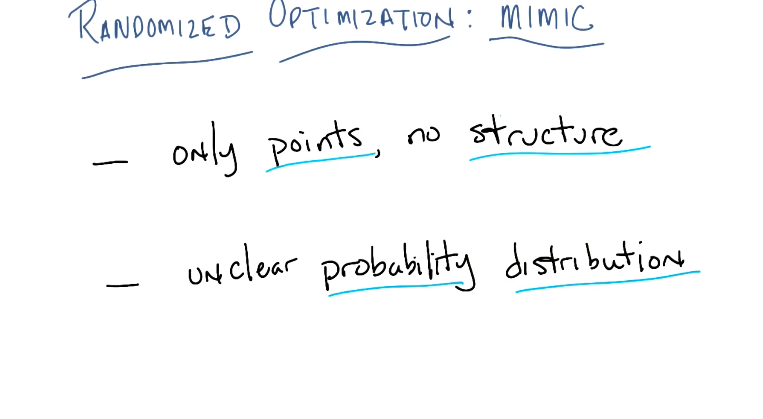 RANDOMIZED OPTIMIZATION: MIMIC
— only points, no structure
— unclear probability distribution